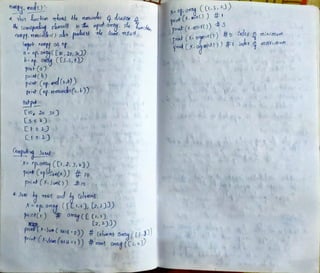 numpy.mod():
* This function returns the remainder of division of
the corresponding elements in the input array. The function
numpy.remainder() also produces the same result.
import numpy as np
a = np.array([10, 20, 30])
b = np.array([
print(a)
print(b)
print(np.mod(a,b))
print(np.remainder(a,b))
output:
[10, 20 30]
Computing sum:
x = np.array([1, 2, 3, 4])
print(np.sum(x)) # 10
print(x.sum()) # 10
* sum by rows and by columns:
x = np.array([[1,1], [2,2]])
print(x) # array([[1,1],
[2,2]])
print(x.sum(axis=0)) # columns array([3,3])
print(x.sum(axis=1)) # rows array([2,4])
x = np.array([1,3,2])
print(x.min()) # 1
print(x.max()) # 3
print(x.argmin()) # 0 index of minimum
print(x.argmax()) # 1 index of maximum